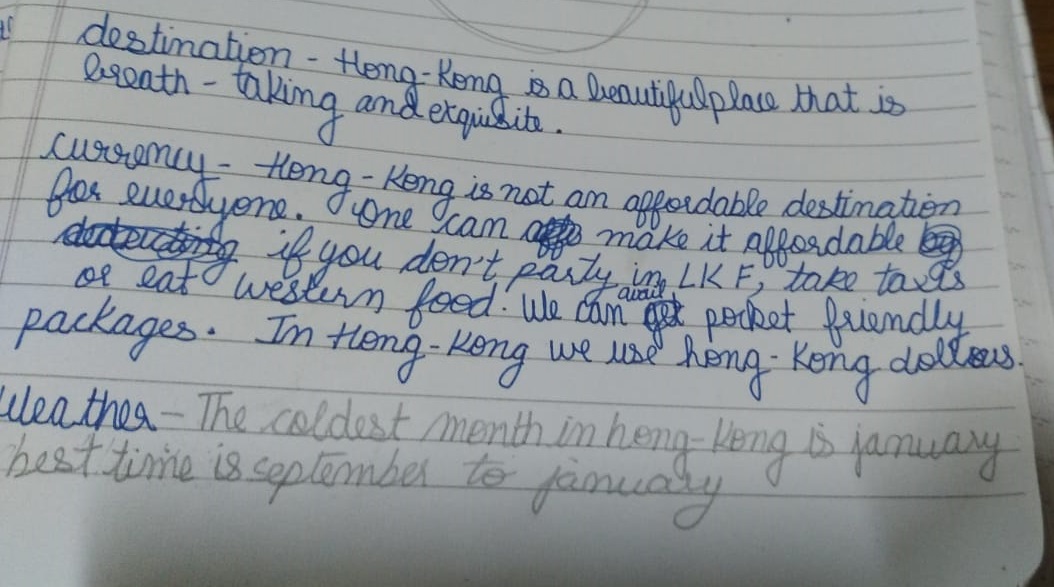 destination - Hong-Kong is a beautiful place that is
breath - taking and exquisite.
currency - Hong - Kong is not an affordable destination
for everyone. One can make it affordable
if you don't party in LKF, take taxis
or eat western food. We can avail pocket friendly
packages. In Hong-Kong we use hong-Kong dollars.
Weather - The coldest month in hong-Kong is january
best time is september to january